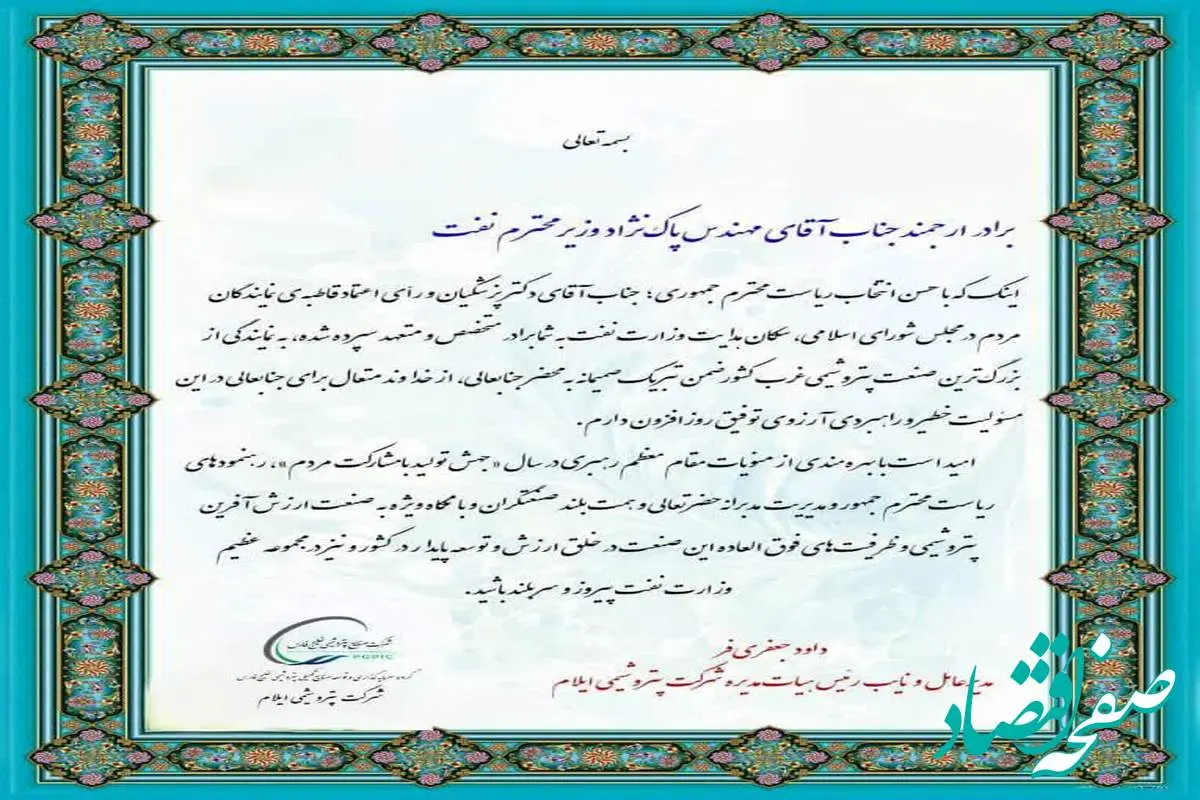 بسمه تعالی
برادر ارجمند جناب آقای مهندس پاک‌نژاد وزیر محترم نفت
اینک که با حسن انتخاب ریاست محترم جمهوری؛ جناب آقای دکتر پزشکیان و رأی اعتماد قاطبه‌ی نمایندگان
مردم در مجلس شورای اسلامی، سکان هدایت وزارت نفت به شما برادر متخصص و متعهد سپرده شده، به نمایندگی از
بزرگ‌ترین صنعت پتروشیمی غرب کشور ضمن تبریک صمیمانه به محضر جنابعالی، از خداوند متعال برای جنابعالی در این
مسئولیت خطیر و راهبردی آرزوی توفیق روزافزون دارم.
امید است با بهره مندی از منویات مقام معظم رهبری در سال «جهش تولید با مشارکت مردم»، رهنمودهای
ریاست محترم جمهور و مدیریت مدبرانه حضرتعالی و همت بلند صنعتگران و با نگاه ویژه به صنعت ارزش آفرین
پتروشیمی و ظرفیت‌های فوق العاده این صنعت در خلق ارزش و توسعه پایدار در کشور و نیز در مجموعه عظیم
وزارت نفت پیروز و سربلند باشید.
داود جعفری فر
مدیرعامل و نایب رئیس هیات مدیره شرکت پتروشیمی ایلام
شرکت صنایع پتروشیمی خلیج فارس
PGPIC
گروه سرمایه‌گذاری و توسعه صنایع تکمیلی پتروشیمی خلیج فارس
شرکت پتروشیمی ایلام
صفحه اقتصاد